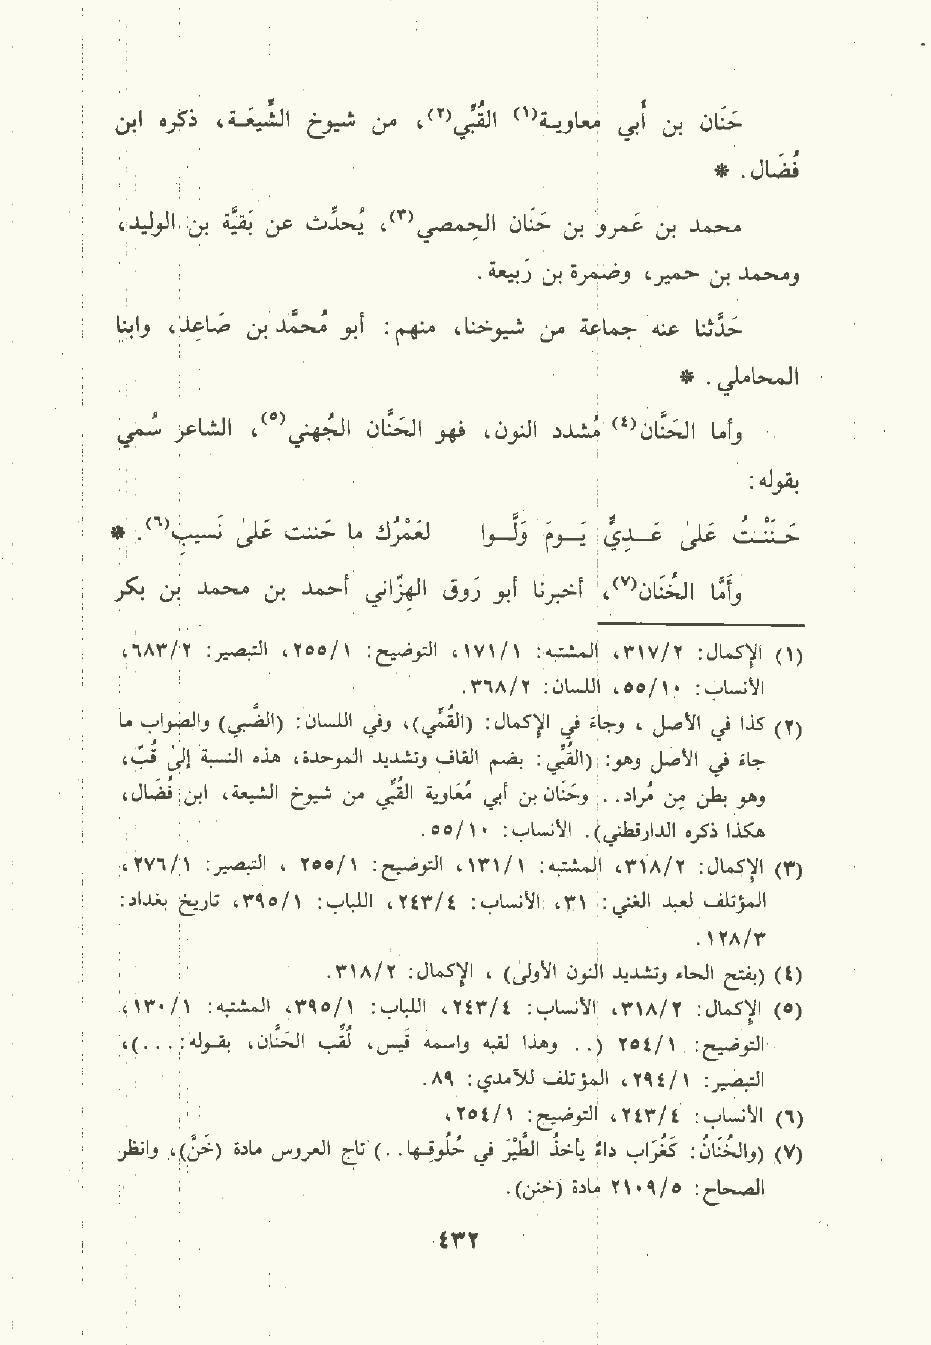 حَنَان بن أَبي معاويـة(١) القُبِّي(٢)، من شيوخ الشِّيعَـة، ذكره ابن
فُضَال. *
محمد بن عَمرو بن حَنَان الحِمصي(٣)، يُحدِّث عن بَقيَّة بن الوليد،
ومحمد بن حمير، وضمرة بن رَبيعة.
حَدَّثنا عنه جماعة من شيوخنا، منهم: أبو مُحمَّد بن صَاعِد، وابنا
المحاملي. *
وأما الحَنَّان(٤) مُشدد النون، فهو الحَنَّان الجُهني(٥)، الشاعر سُمي
بقوله:
حَـنَـنْـتُ عَلىٰ عَـدِيٍّ يَـومَ وَلَّـوا لَعَمْرُك ما حَننت عَلىٰ نَسيبِ(٦). *
وأَمَّا الخُنَان(٧)، أخبرنا أبو رَوق الهِزَّاني أحمد بن محمد بن بكر
(١) الإكمال: ٣١٧/٢، المشتبه: ١٧١/١، التوضيح: ٢٥٥/١، التبصير: ٦٨٣/٢،
الأنساب: ٥٥/١٠، اللسان: ٣٦٨/٢.
(٢) كذا في الأصل، وجاء في الإكمال: (القُمِّي)، وفي اللسان: (الضَّبي) والصواب ما
جاء في الأصل وهو: (القُبِّي: بضم القاف وتشديد الموحدة، هذه النسبة إلىٰ قُبّ،
وهو بطن مِن مُراد.. وحَنَان بن أبي مُعَاوية القُبِّي من شيوخ الشيعة، ابن فُضَال،
هكذا ذكره الدارقطني). الأنساب: ٥٥/١٠.
(٣) الإكمال: ٣١٨/٢، المشتبه: ١٣١/١، التوضيح: ٢٥٥/١، التبصير: ٢٧٦/١،
المؤتلف لعبد الغني: ٣١، الأنساب: ٢٤٣/٤، اللباب: ٣٩٥/١، تاريخ بغداد:
١٢٨/٣.
(٤) (بفتح الحاء وتشديد النون الأولىٰ)، الإكمال: ٣١٨/٢.
(٥) الإكمال: ٣١٨/٢، الأنساب: ٢٤٣/٤، اللباب: ٣٩٥/١، المشتبه: ١٣٠/١،
التوضيح: ٢٥٤/١ (.. وهذا لقبه واسمه قَيس، لُقِّب الحَنَّان، بقوله:...)،
التبصير: ٢٩٤/١، المؤتلف للآمدي: ٨٩.
(٦) الأنساب: ٢٤٣/٤، التوضيح: ٢٥٤/١،
(٧) (والخُنَانُ: كَغُرَاب داءٌ يأخذُ الطَّيْرَ في حُلُوقِـها..) تاج العروس مادة (خَنَّ)، وانظر
الصحاح: ٢١٠٩/٥ مادة (خنن).
٤٣٢